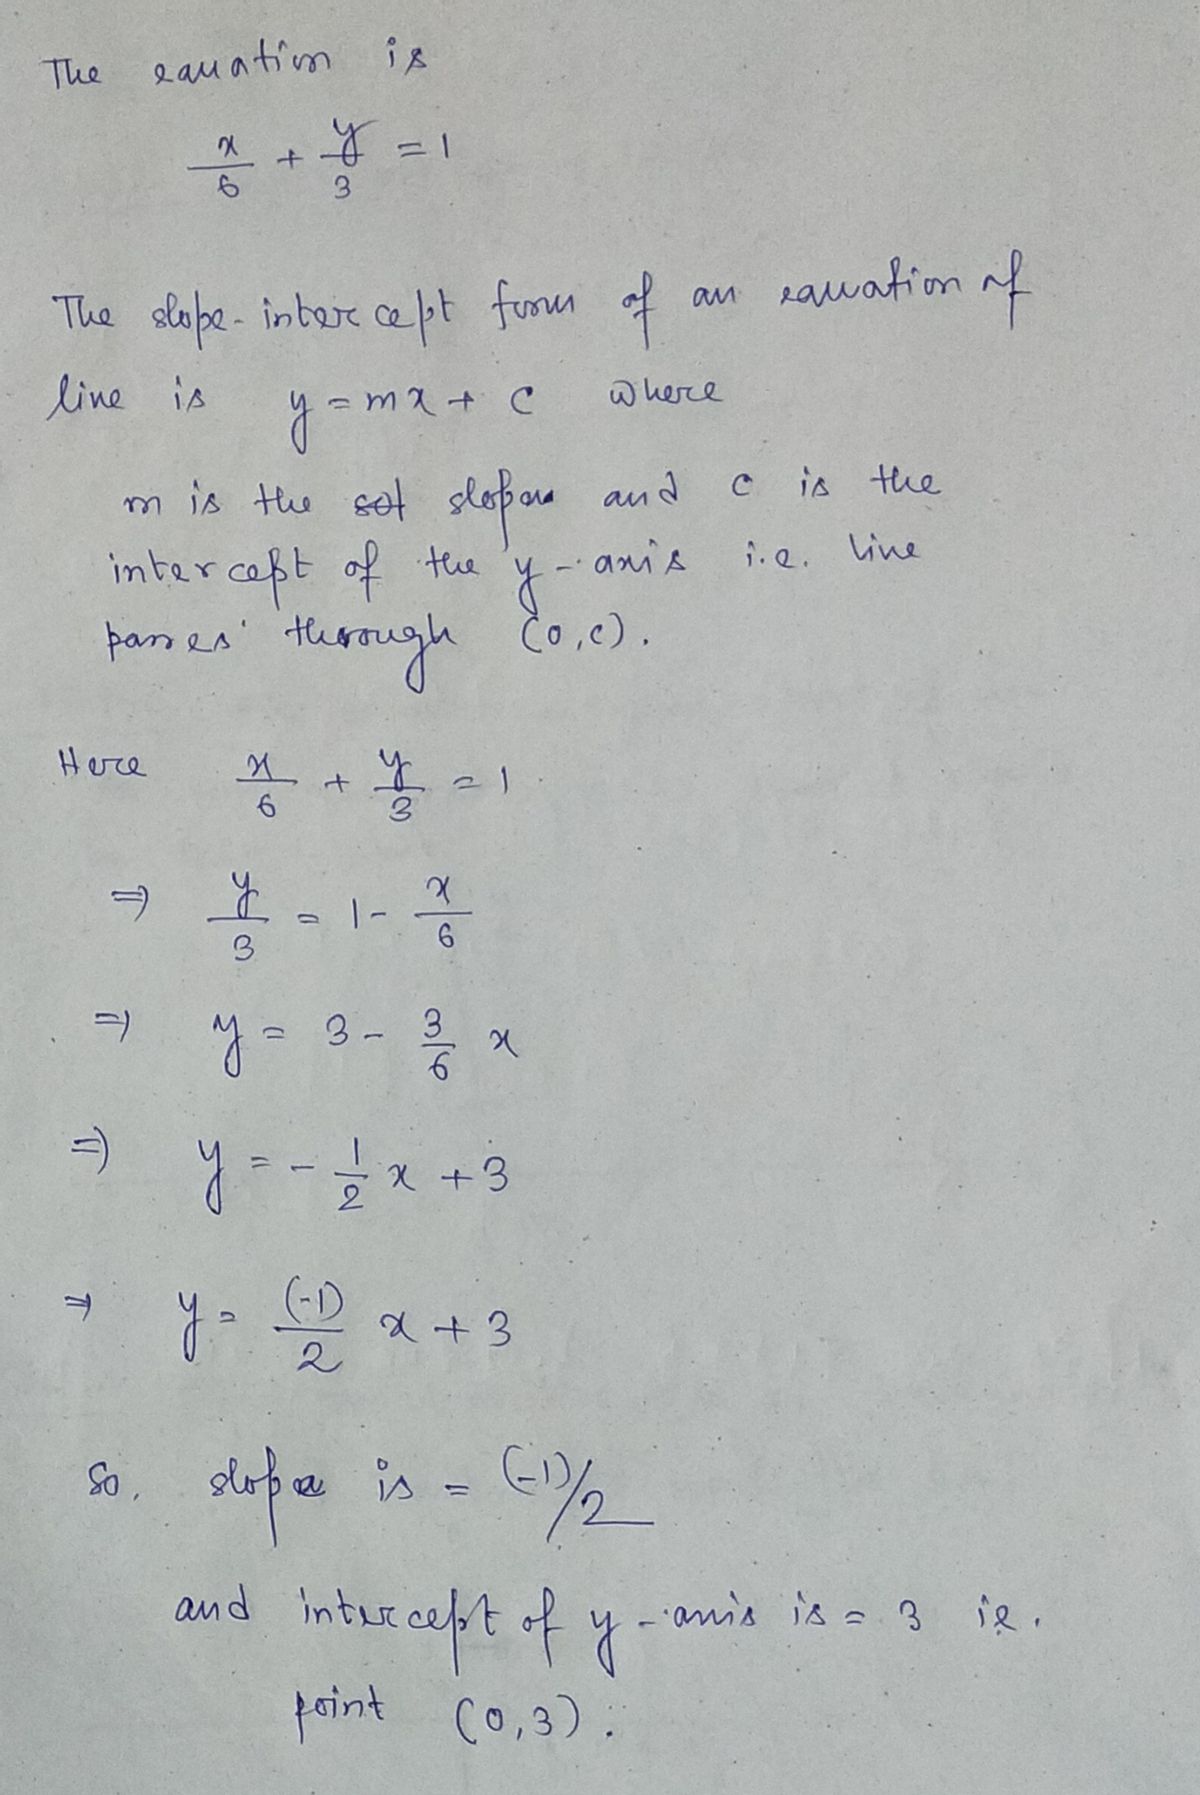 The equation is
x/6 + y/3 = 1
The slope-intercept form of an equation of
line is y = mx + c where
m is the slope and c is the
intercept of the y-axis i.e. line
passes through (0,c).
Here x/6 + y/3 = 1
⇒ y/3 = 1 - x/6
⇒ y = 3 - 3/6 x
⇒ y = - 1/2 x + 3
⇒ y = (-1)/2 x + 3
So, slope is = (-1)/2
and intercept of y-axis is = 3 i.e.
point (0,3).